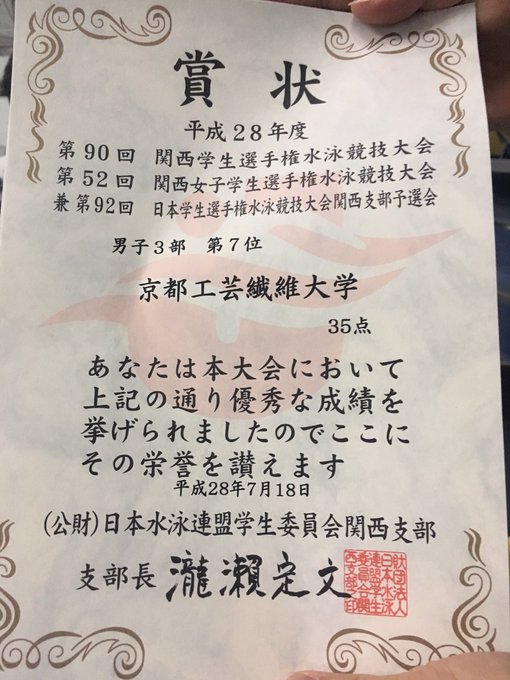 賞状
平成28年度
第90回 関西学生選手権水泳競技大会
第52回 関西女子学生選手権水泳競技大会
兼 第92回 日本学生選手権水泳競技大会関西支部予選会
男子3部 第7位
京都工芸繊維大学
35点
あなたは本大会において
上記の通り優秀な成績を
挙げられましたのでここに
その栄誉を讃えます
平成28年7月18日
(公財)日本水泳連盟学生委員会関西支部
支部長 瀧瀬定文
財団法人
日本水泳
連盟学生
委員会関
西支部之印